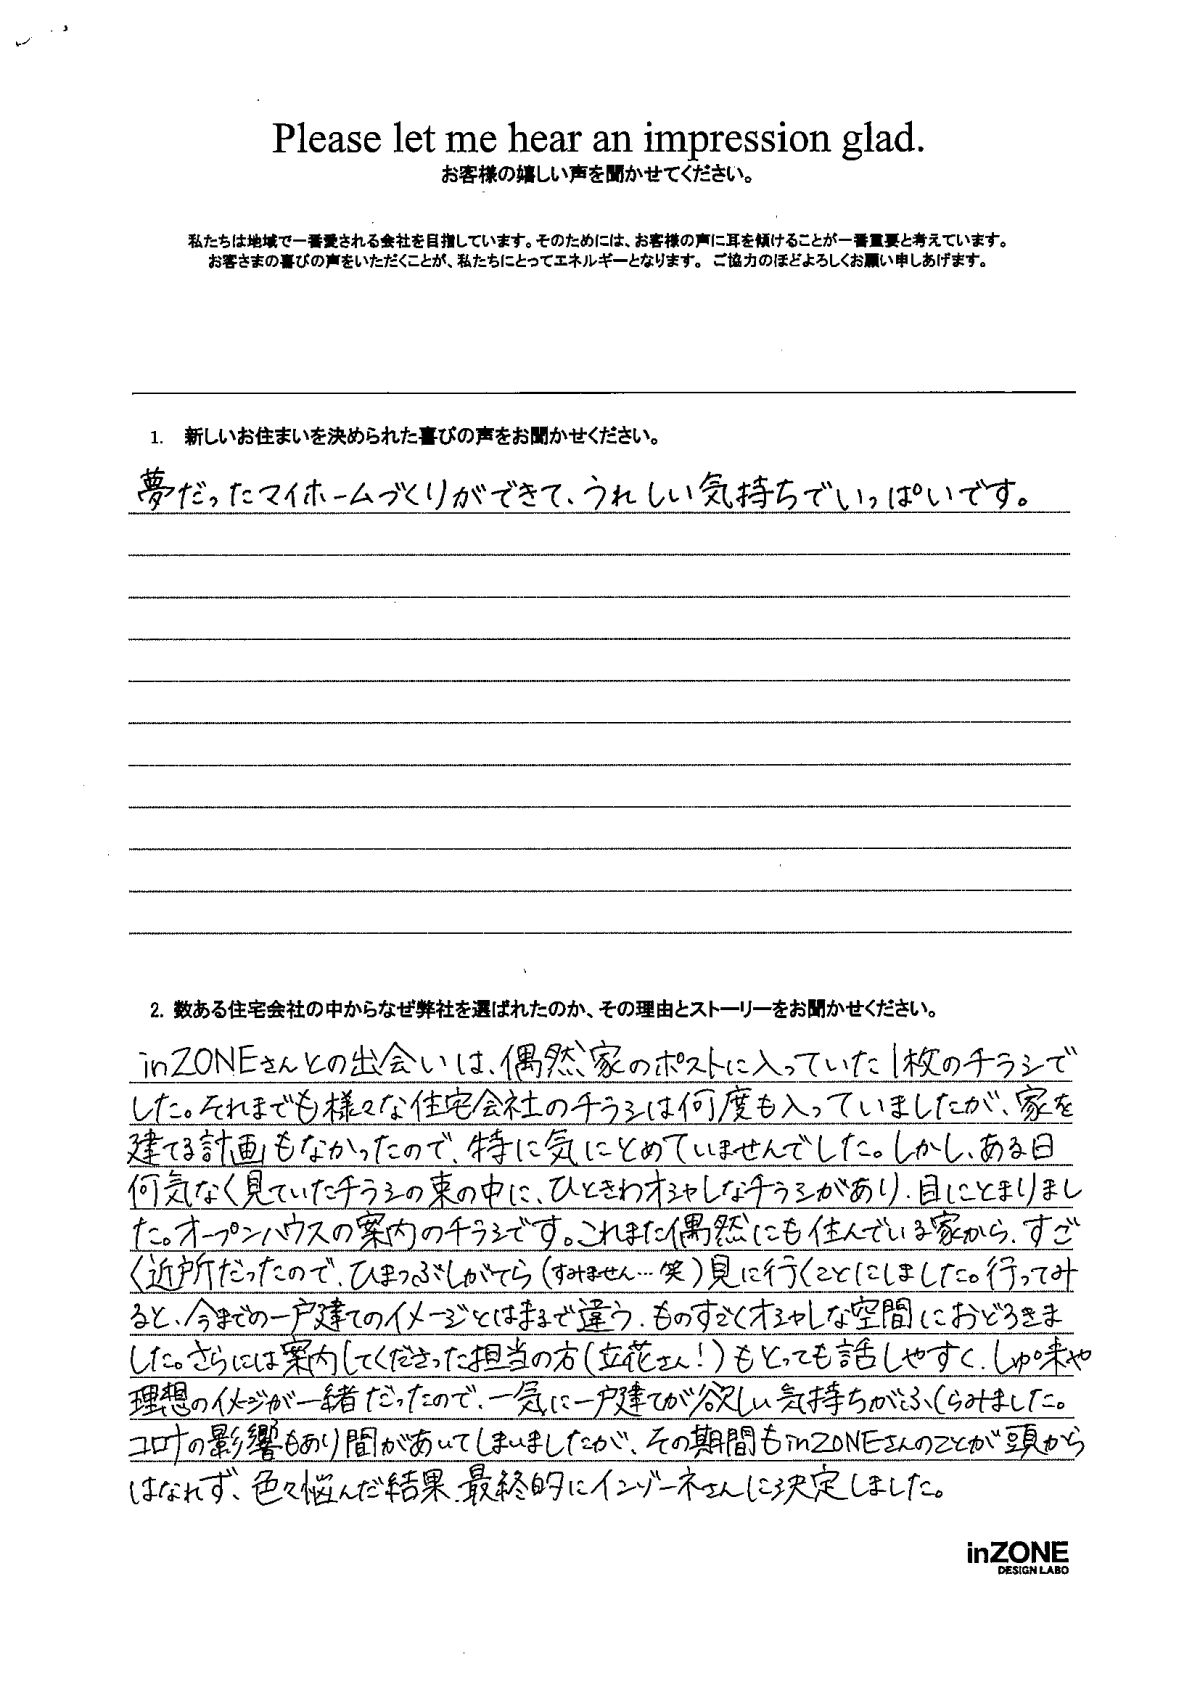 Please let me hear an impression glad.
お客様の嬉しい声を聞かせてください。
私たちは地域で一番愛される会社を目指しています。そのためには、お客様の声に耳を傾けることが一番重要と考えています。
お客さまの喜びの声をいただくことが、私たちにとってエネルギーとなります。ご協力のほどよろしくお願い申しあげます。
1. 新しいお住まいを決められた喜びの声をお聞かせください。
夢だったマイホームづくりができて、うれしい気持ちでいっぱいです。
2. 数ある住宅会社の中からなぜ弊社を選ばれたのか、その理由とストーリーをお聞かせください。
inZONEさんとの出会いは、偶然、家のポストに入っていた1枚のチラシで
した。それまでも様々な住宅会社のチラシは何度も入っていましたが、家を
建てる計画もなかったので、特に気にとめていませんでした。しかし、ある日
何気なく見ていたチラシの束の中に、ひときわオシャレなチラシがあり、目にとまりまし
た。オープンハウスの案内のチラシです。これまた偶然にも住んでいる家から、すご
く近所だったので、ひまつぶしがてら(すみません…笑)見に行くことにしました。行ってみ
ると、今までの一戸建てのイメージとはまるで違う、ものすごくオシャレな空間におどろきま
した。さらには案内してくださった担当の方(立花さん!)もとっても話しやすく、しゅ味や
理想のイメージが一緒だったので、一気に一戸建てが欲しい気持ちがふくらみました。
コロナの影響もあり間があいてしまいましたが、その期間もinZONEさんのことが頭から
はなれず、色々悩んだ結果、最終的にインゾーネさんに決定しました。
inZONE
DESIGN LABO